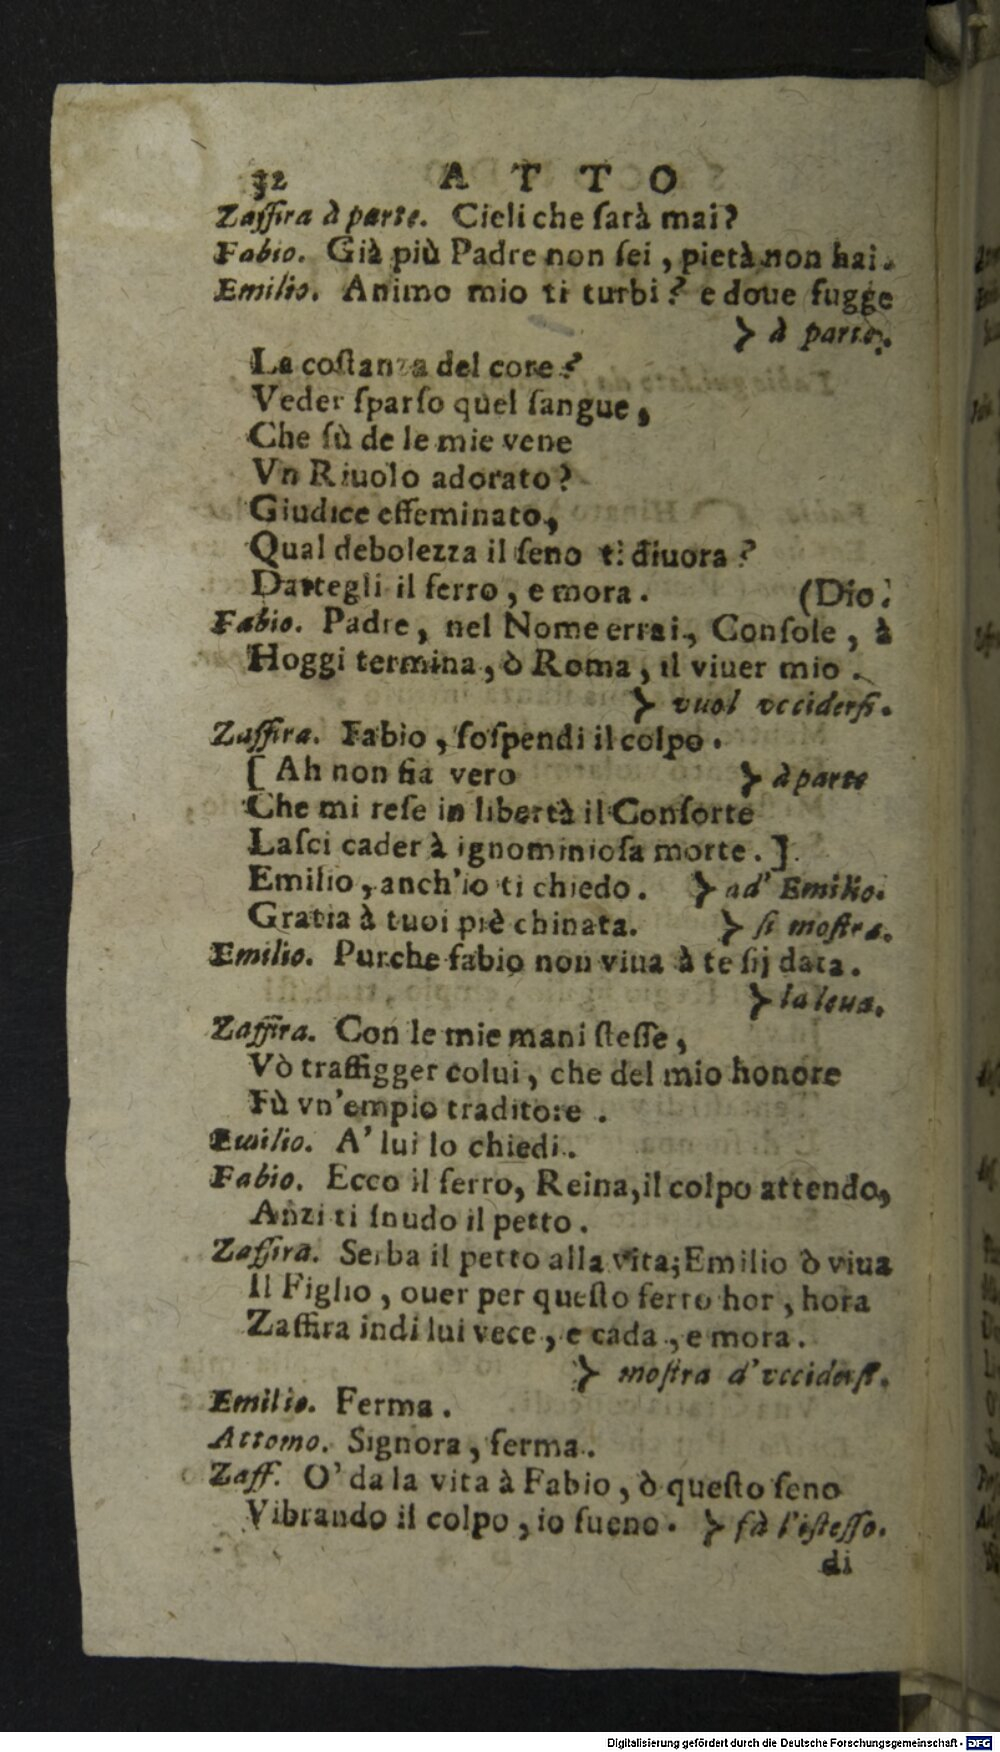 32 ATTO
Zaffira à parte. Cieli che ſarà mai?
Fabio. Già più Padre non ſei, pietà non hai.
Emilio. Animo mio ti turbi? e doue fugge
} à parte.
La coſtanza del core?
Veder ſparſo quel ſangue,
Che fù de le mie vene
Vn Riuolo adorato?
Giudice effeminato,
Qual debolezza il ſeno ti diuora?
Dartegli il ferro, e mora. (Dio.
Fabio. Padre, nel Nome errai, Conſole, à
Hoggi termina, ò Roma, il viuer mio.
} vuol vcciderſi.
Zaffira. Fabio, ſoſpendi il colpo.
[Ah non fia vero } à parte
Che mi reſe in libertà il Conſorte
Laſci cader à ignominioſa morte.]
Emilio, anch'io ti chiedo. } ad' Emilio.
Gratia à tuoi piè chinata. } ſi moſtra.
Emilio. Purche fabio non viua à te ſij data.
} la leua.
Zaffira. Con le mie mani ſteſſe,
Vò traffigger colui, che del mio honore
Fù vn'empio traditore.
Emilio. A' lui lo chiedi.
Fabio. Ecco il ferro, Reina, il colpo attendo,
Anzi ti ſnudo il petto.
Zaffira. Serba il petto alla vita; Emilio ò viua
Il Figlio, ouer per queſto ferro hor, hora
Zaffira indi lui vece, e cada, e mora.
} moſtra d'vcciderſi.
Emilio. Ferma.
Attomo. Signora, ferma.
Zaff. O' da la vita à Fabio, ò queſto ſeno
Vibrando il colpo, io ſueno. } fà l'iſteſſo.
di
Digitalisierung gefördert durch die Deutsche Forschungsgemeinschaft - DFG